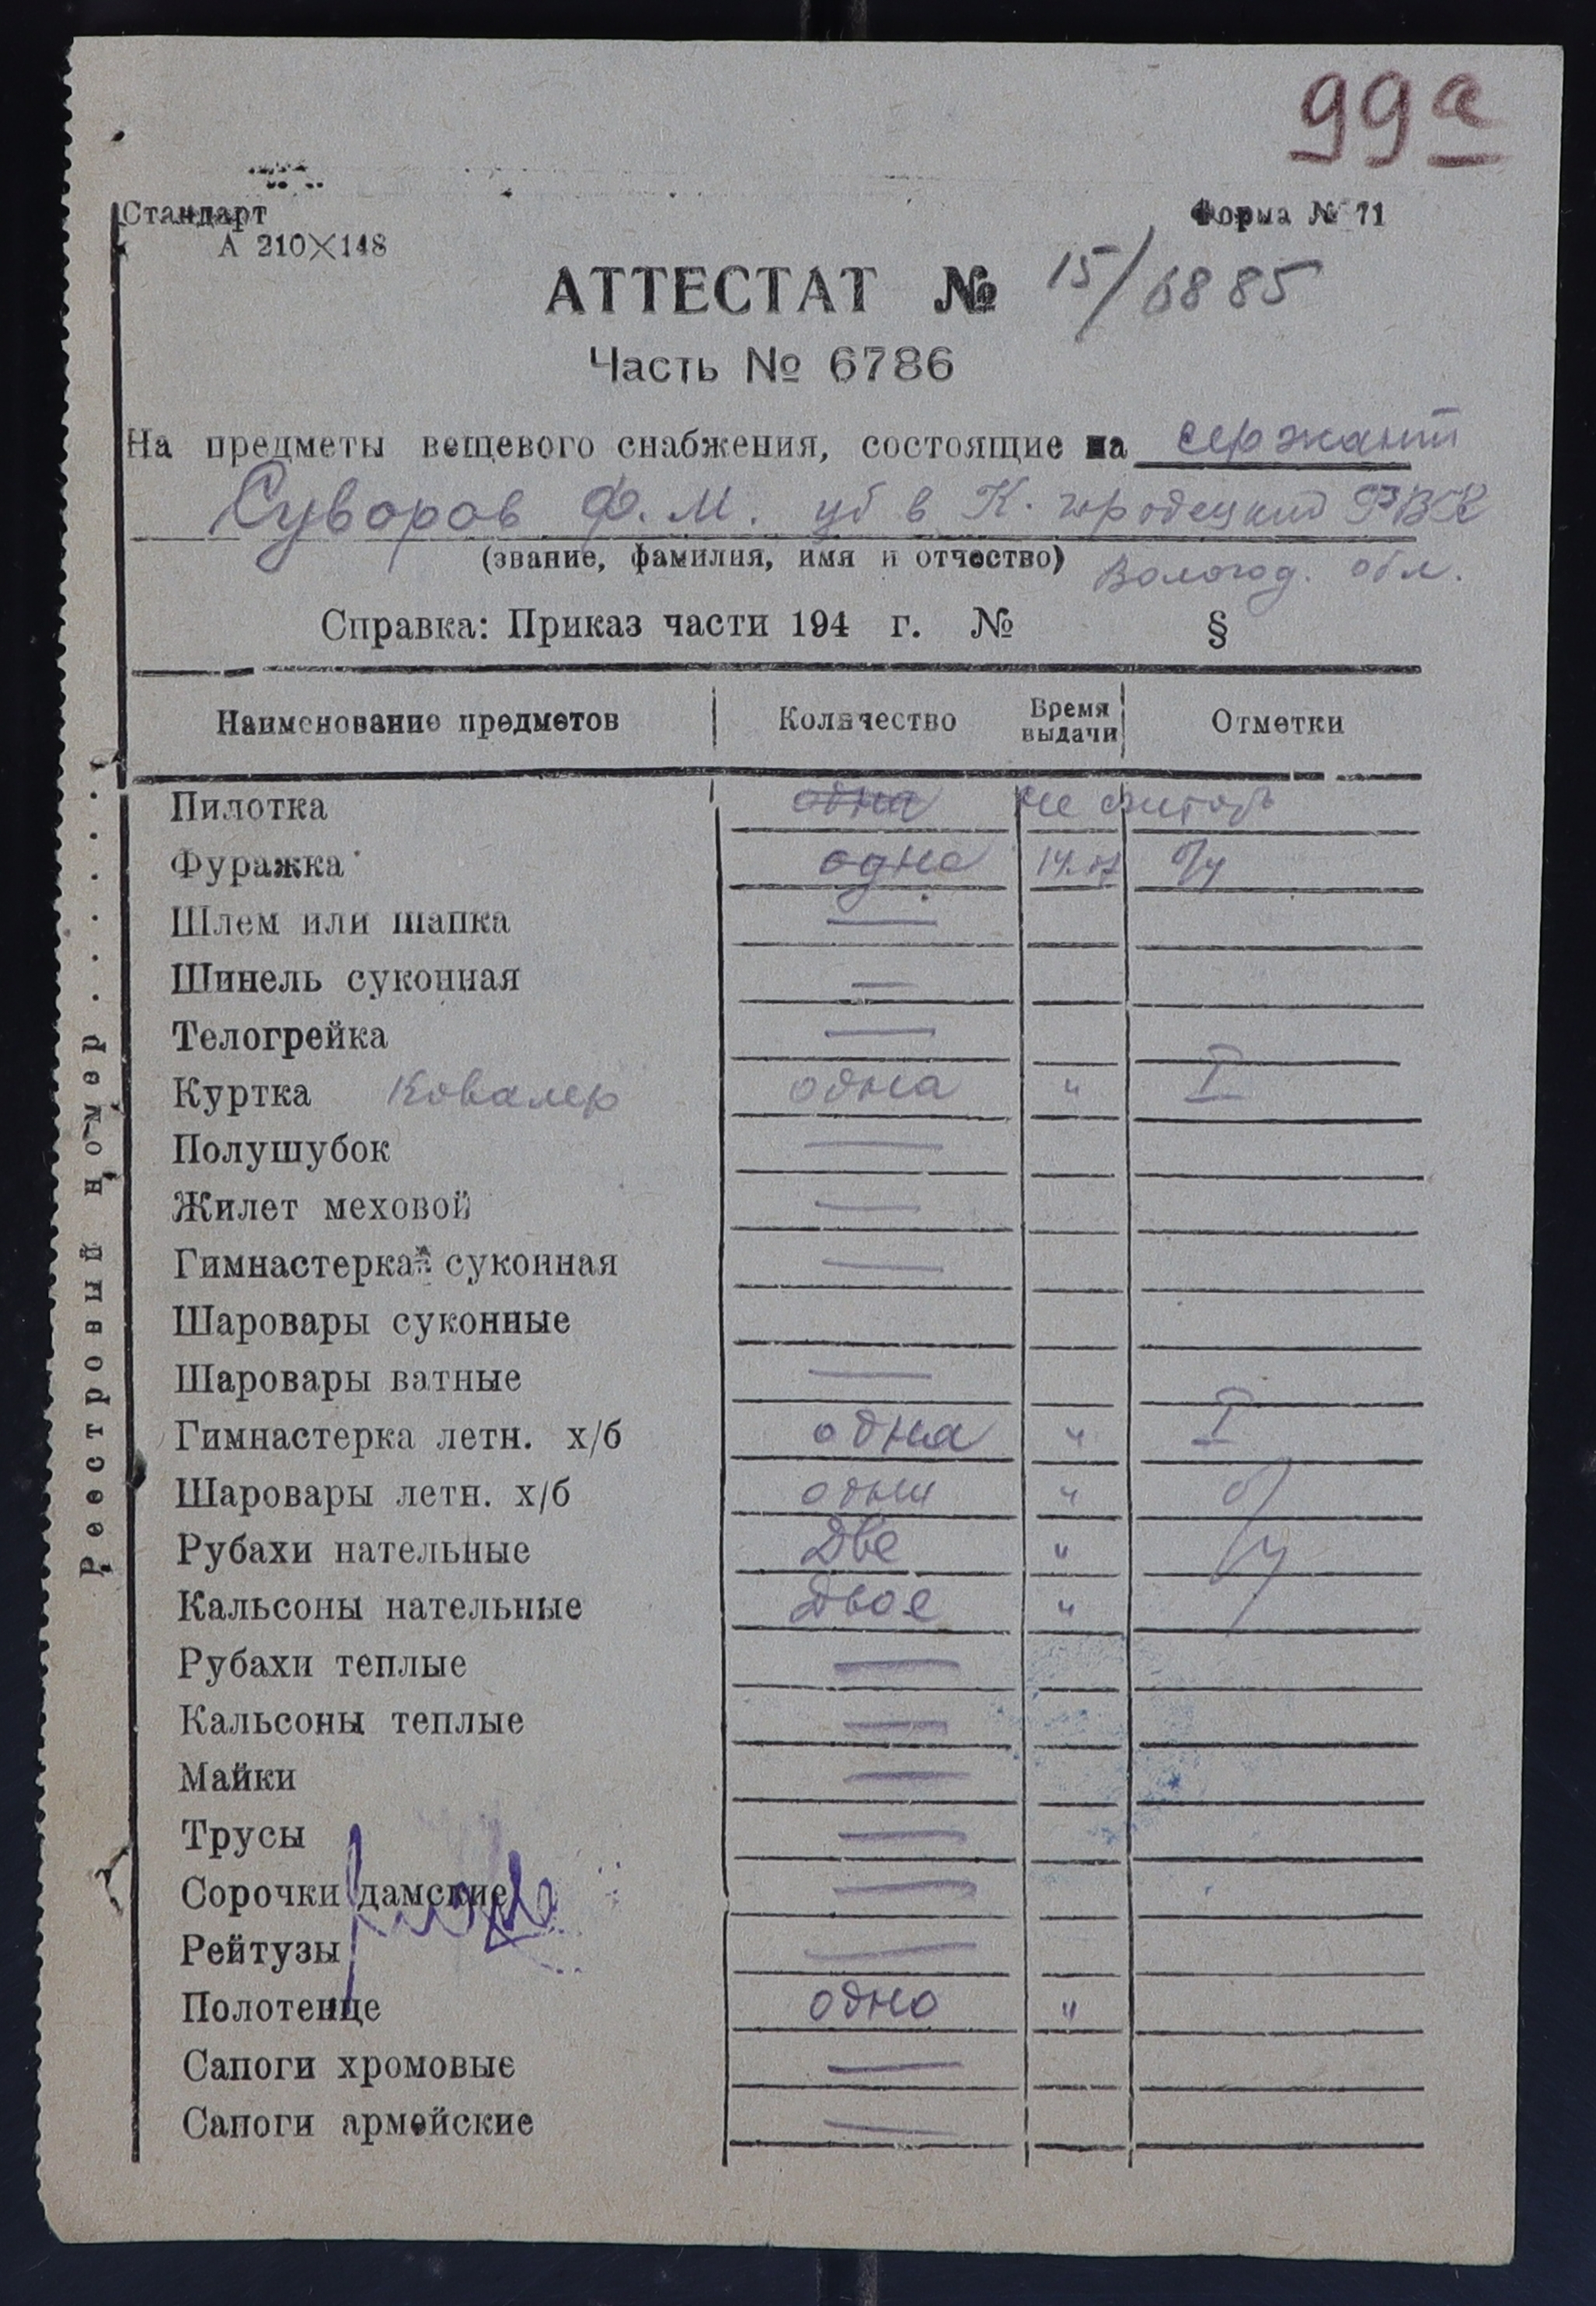 99а
Стандарт
А 210×148
Форма № 71
АТТЕСТАТ № 15/6885
Часть № 6786
На предметы вещевого снабжения, состоящие на сержант
Суворов Ф. М. уб в К. городецкий РВК
(звание, фамилия, имя и отчество) Вологод. обл.
Справка: Приказ части 194 г. № §
Наименование предметов Количество Время выдачи Отметки
Пилотка одна не считать
Фуражка одна 14.07 б/у
Шлем или шапка —
Шинель суконная —
Телогрейка —
Куртка Ковалер одна " I
Полушубок —
Жилет меховой —
Гимнастерка суконная —
Шаровары суконные
Шаровары ватные —
Гимнастерка летн. х/б одна " I
Шаровары летн. х/б одни " б/у
Рубахи нательные Две "
Кальсоны нательные Двое "
Рубахи теплые —
Кальсоны теплые —
Майки —
Трусы —
Сорочки дамские —
Рейтузы —
Полотенце одно "
Сапоги хромовые —
Сапоги армейские —
Реестровый номер . . . . .